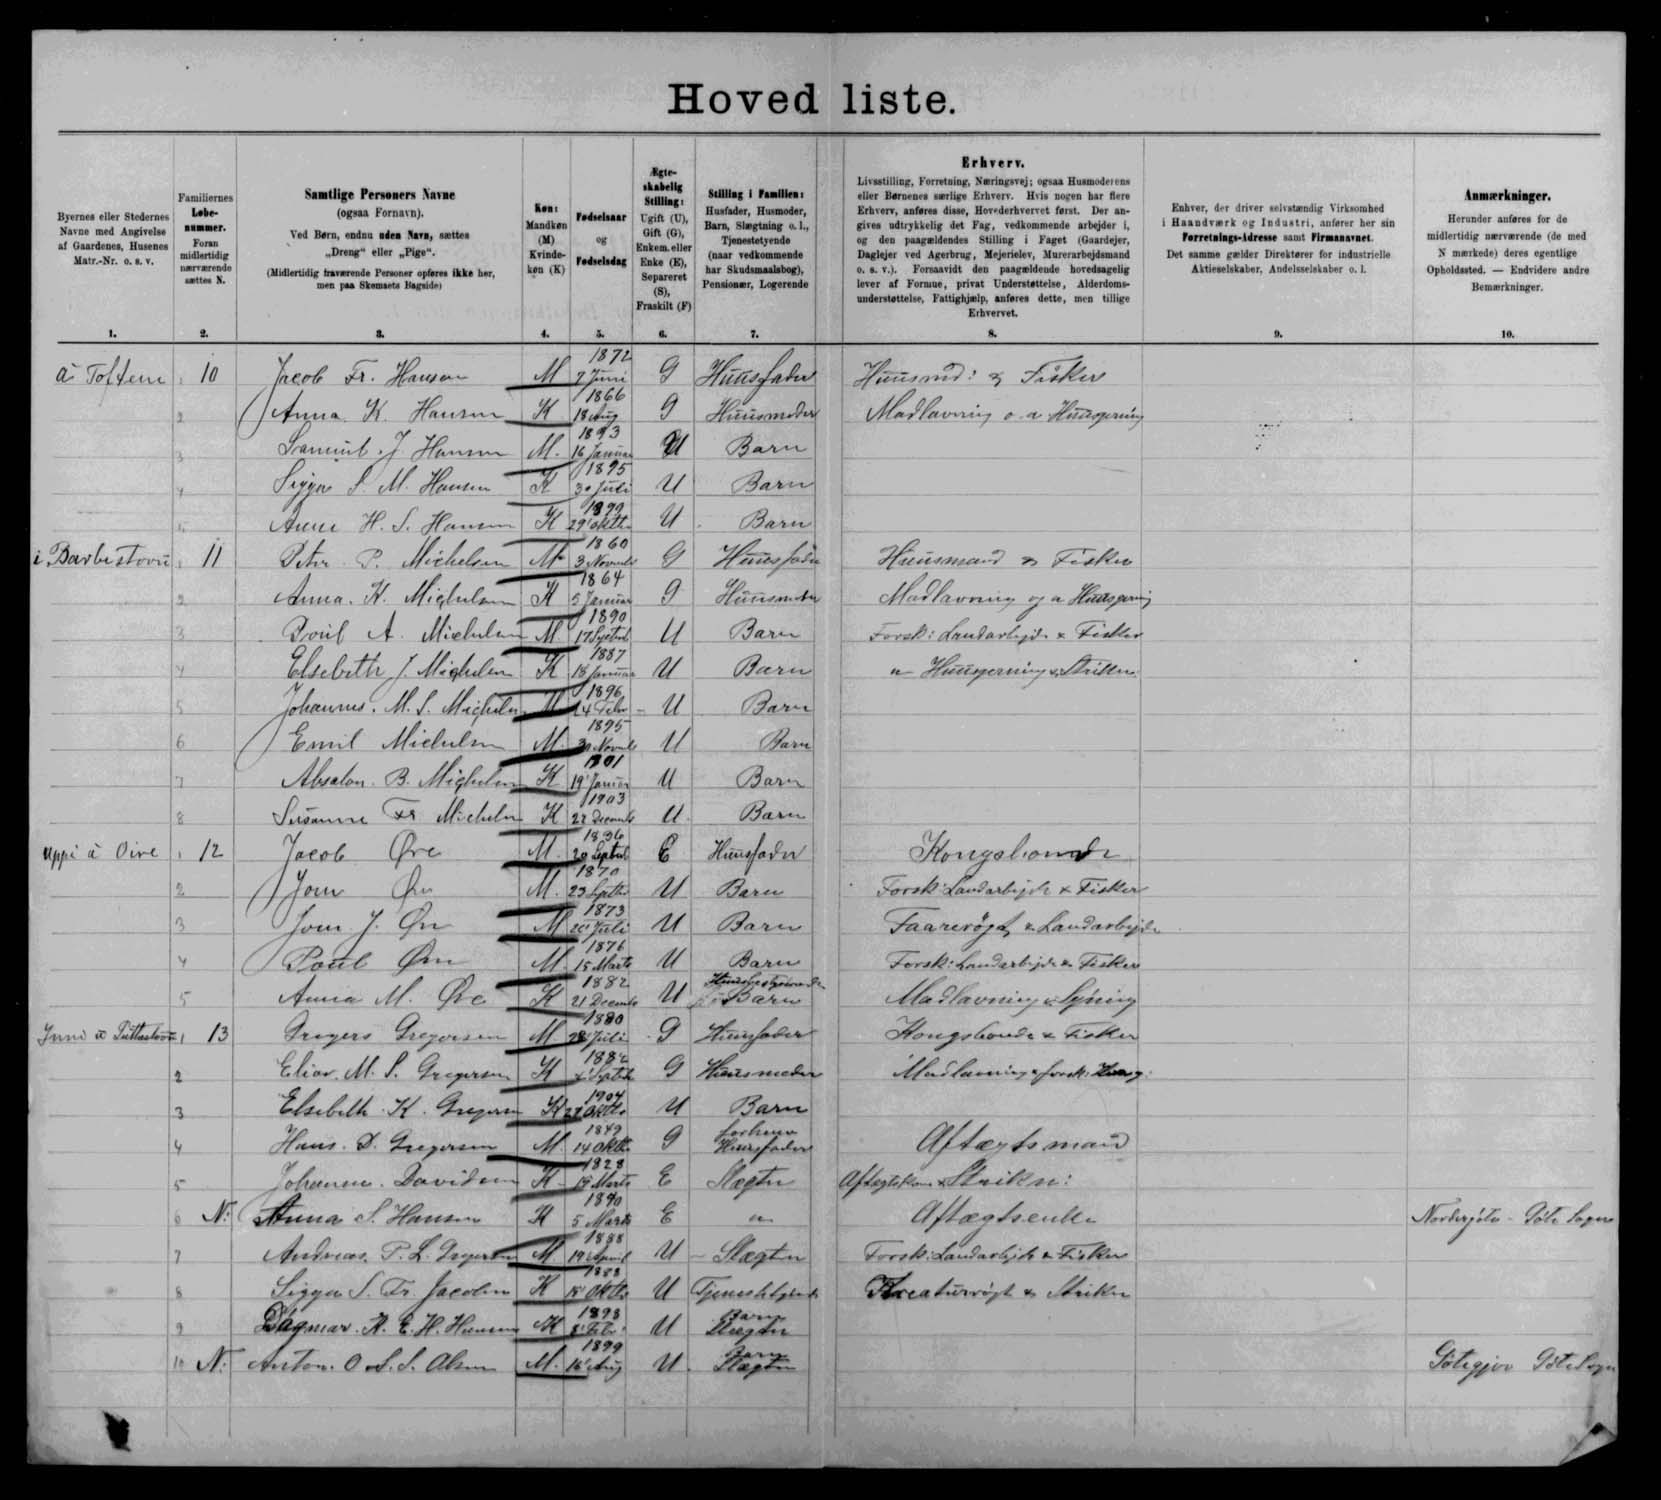 Hoved liste.
Byernes eller Stedernes
Navne med Angivelse
af Gaardenes, Husenes
Matr.-Nr. o. s. v.
1.
Familiernes
Løbe-
nummer.
Foran
midlertidig
nærværende
sættes N.
2.
Samtlige Personers Navne
(ogsaa Fornavn).
Ved Børn, endnu uden Navn, sættes
„Dreng“ eller „Pige“.
(Midlertidig fraværende Personer opføres ikke her,
men paa Skemaets Bagside)
3.
Køn:
Mandkøn
(M)
Kvinde-
køn (K)
4.
Fødselsaar
og
Fødselsdag
5.
Ægte-
skabelig
Stilling:
Ugift (U),
Gift (G),
Enkem. eller
Enke (E),
Separeret
(S),
Fraskilt (F)
6.
Stilling i Familien:
Husfader, Husmoder,
Barn, Slægtning o. l.,
Tjenestetyende
(naar vedkommende
har Skudsmaalsbog),
Pensionær, Logerende
7.
Erhverv.
Livsstilling, Forretning, Næringsvej; ogsaa Husmoderens
eller Børnenes særlige Erhverv. Hvis nogen har flere
Erhverv, anføres disse, Hovederhvervet først. Der an-
gives udtrykkelig det Fag, vedkommende arbejder i,
og den paagældendes Stilling i Faget (Gaardejer,
Daglejer ved Agerbrug, Mejerielev, Murerarbejdsmand
o. s. v.). Forsaavidt den paagældende hovedsagelig
lever af Formue, privat Understøttelse, Alderdoms-
understøttelse, Fattighjælp, anføres dette, men tillige
Erhvervet.
8.
Enhver, der driver selvstændig Virksomhed
i Haandværk og Industri, anfører her sin
Forretnings-Adresse samt Firmanavnet.
Det samme gælder Direktører for industrielle
Aktieselskaber, Andelsselskaber o. l.
9.
Anmærkninger.
Herunder anføres for de
midlertidig nærværende (de med
N mærkede) deres egentlige
Opholdssted. — Endvidere andre
Bemærkninger.
10.
à Toftem 1 10 Jacob Fr. Hansen M 1872 7 Juni G Huusfader Huusmd: & Fisker
2 Anna K. Hansen K 1866 18 Aug G Huusmoder Madlavning o a Huusgerning
3 Samuel J. Hansen M. 1893 16 Januar U Barn
4 Sigga S. M. Hansen K 1895 30 Juli U Barn
5 Anne H. S. Hansen K 1899 29 oktbr U Barn
i Barbestovu 1 11 Peter P. Michelsen M 1860 3 Novemb G Huusfader Huusmand & Fisker
2 Anna. K. Michelsen K 1864 5 Januar G Huusmoder Madlavning og a Huusgerning
3 Poul A. Michelsen M. 1890 17 Septeb U Barn Forsk: Landarbejde & Fisker
4 Elsebeth J. Michelsen K 1887 18 Januar U Barn " Huusgerning & Strikken
5 Johannes. M. S. Michelsen M 1896 24 Febr U Barn
6 Emil Michelsen M. 1895 30 Novemb U Barn
7 Absalon. B. Michelsen K 1901 19 Januar U Barn
8 Susanne Fr Michelsen K 1903 22 Decemb U. Barn
uppi à Oire 1 12 Jacob Øre M. 1836 20 Septeb E Huusfader Kongsbonde
2 Joen Øre M. 1870 23 Septbr U Barn Forsk: Landarbejde & Fisker
3 Joen. J. Øre M 1873 20 Juli U Barn Faarerøgt & Landarbejde
4 Poul Øre M. 1876 15 Marts U Barn Forsk: Landarbejde & Fisker
5 Anna M. Øre K 1882 21 Decemb U Huusbestyrerinde Barn Madlavning & Syning
1 13 Gregers Gregersen M 1880 28 Juli G Huusfader Kongsbonde & Fisker
2 M. S. Gregersen K 1882 Septeb G Huusmoder Madlavning & forsk: Huusg:
3 Elsebeth. K. Gregersen K 1904 27 Oktbr U Barn
4 Hans. D. Gregersen M. 1849 14 Oktbr G forhenv Huusfader Aftægtsmand
5 Johanne. Davidsen K 1828 19 Marts E Slægtn Aftægtskone & Strikn:
6 N: Anna S. Hansen K 1840 5 Marts E " Aftægtsenke Nordergöte - Göte Sogn
7 Andreas. P. L. Gregersen M 1888 19 April U Slægtn Forsk: Landarbejde & Fisker
8 Sigga S. Fr. Jacobsen K 1888 18 Oktbr U Tjenestetyende Kreaturrøgt & Strikn
9 Dagmar. K. E. H. Hansen K 1898 8 Febr U Barn Slægtn
10 N: Anton. O. S. S. Olsen M. 1899 16 Aug U. Barn Slægtn Götegjov Göte Sogn